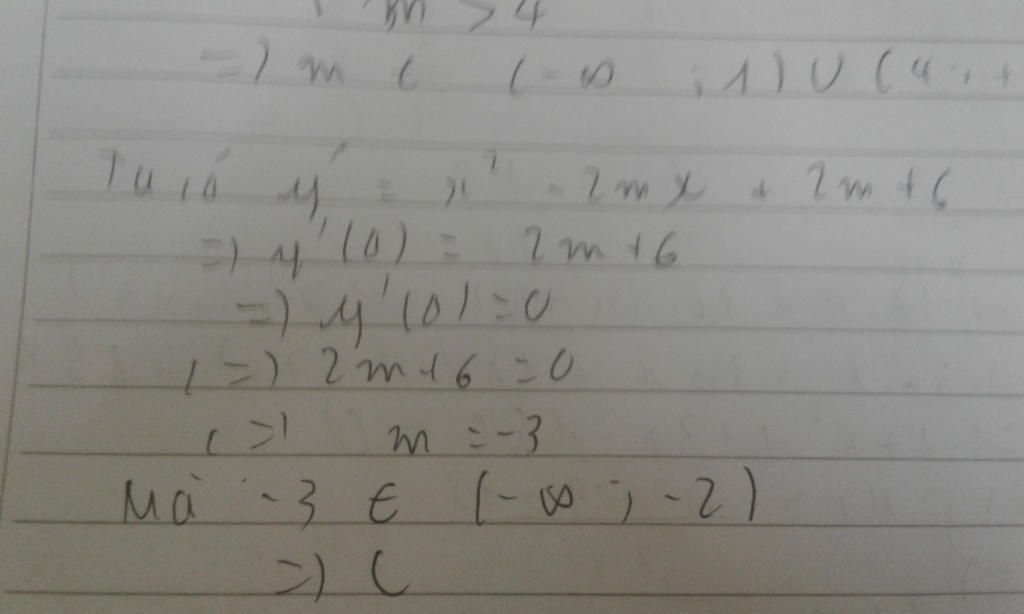 m > 4
=) m ∈ (-∞ ; 1) ∪ (4 ; +
Ta có y' = x² - 2mx + 2m+6
=) y'(0) = 2m+6
=) y'(0) = 0
(=) 2m+6 = 0
(=) m = -3
Mà -3 ∈ (-∞ ; -2)
=) C